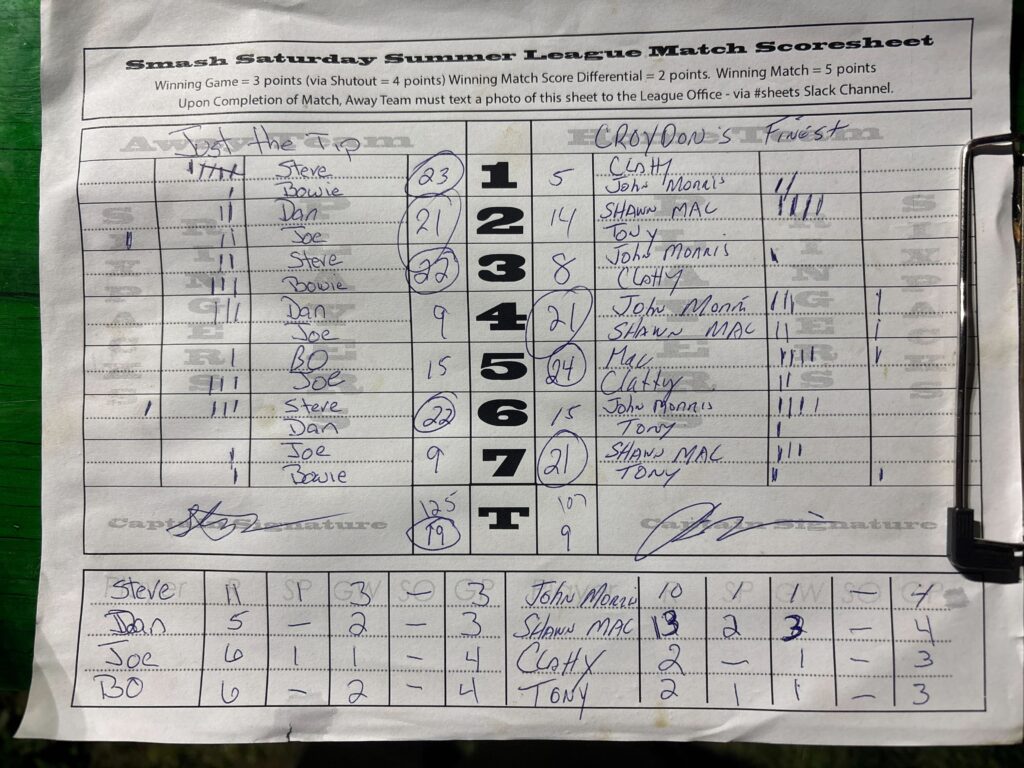 Smash Saturday Summer League Match Scoresheet
Winning Game = 3 points (via Shutout = 4 points) Winning Match Score Differential = 2 points. Winning Match = 5 points
Upon Completion of Match, Away Team must text a photo of this sheet to the League Office - via #sheets Slack Channel.
Away Team Just the Tip Home Team CROYDON'S FINEST
Steve 23 1 5 Clatty
Bowie John Morris
Dan 21 2 14 SHAWN MAC
Joe Tony
Steve 22 3 8 John Morris
Bowie Clatty
Dan 9 4 21 John Morris
Joe SHAWN MAC
BO 15 5 24 Mac
Joe Clatty
Steve 22 6 15 John Morris
Dan Tony
Joe 9 7 21 SHAWN MAC
Bowie TONY
SIXPACKS RINGERS PLAYER PLAYER RINGERS SIXPACKS
125 T 107
Captain Signature 19 9 Captain Signature
Player R SP GW SO GP Player R SP GW SO GP
Steve 11 1 3 - 3 John Morris 10 1 1 - 4
Dan 5 - 2 - 3 SHAWN MAC 13 2 3 - 4
Joe 6 1 1 - 4 Clatty 2 - 1 - 3
BO 6 - 2 - 4 TONY 2 1 1 - 3